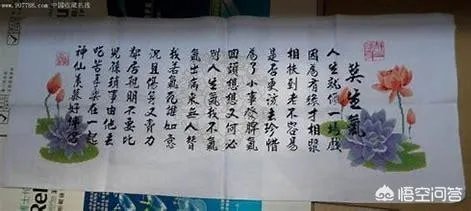 www.997788.com 中国收藏热线
莫生氣
人生就像一場戲
因為有緣才相聚
相扶到老不容易
是否更該去珍惜
為了小事發脾氣
回頭想想又何必
別人生氣我不氣
氣出病來無人替
我若氣死誰如意
況且傷神又費力
鄰居親朋不要比
兒孫瑣事由他去
吃苦享樂在一起
神仙羨慕好伴侶
Rel
悟空问答